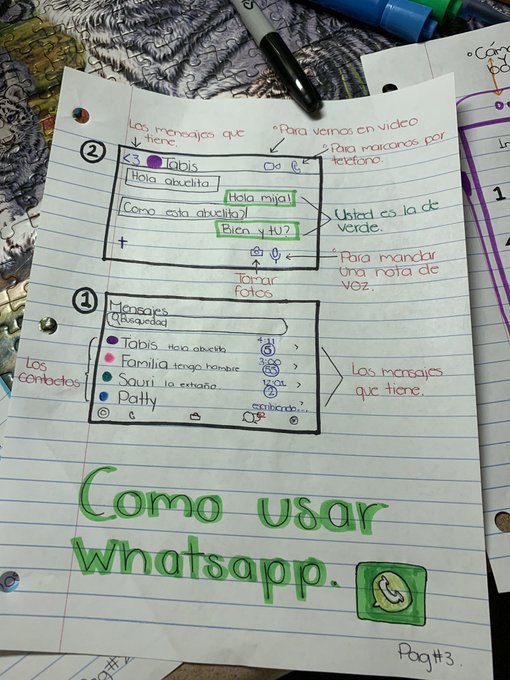 Los mensajes que
tiene.
"Para vernos en video
"Para marcarnos por
telefono.
2
<3 Tabis
Hola abuelita
Hola mija!
Como esta abuelita?
Bien y tu?
Usted es la de
verde.
+
Tomar
fotos
"Para mandar
una nota de
voz.
1
Mensajes
Busquedad
Tabis Hola abuelita 4:11 5 >
Familia tengo hambre 3:00 55 >
Sauri la extraño 12:01 2 >
Patty escribiendo... >
Los
contactos
Los mensajes
que tiene.
Como usar
Whatsapp.
Pag#3.
Pag#2
1